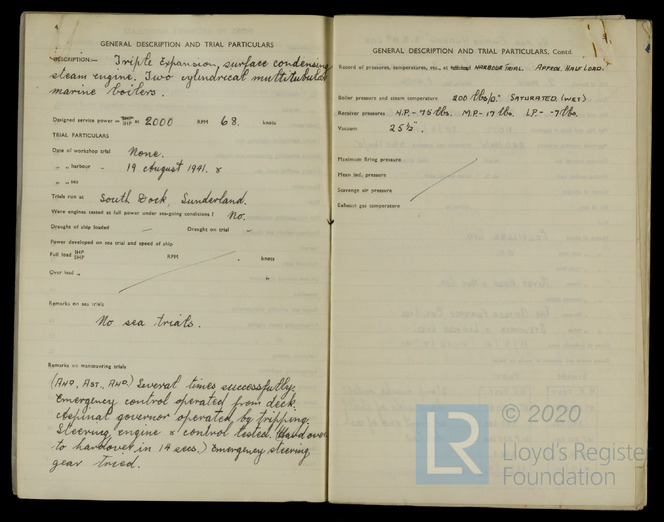 GENERAL DESCRIPTION AND TRIAL PARTICULARS
DESCRIPTION:— Triple Expansion, surface condensing
steam engine. Two cylindrical multitubular
marine boilers.
Designed service power = SHP IHP at 2000 RPM 68. knots
TRIAL PARTICULARS
Date of workshop trial None.
„ „ harbour „ 19 August 1941.
„ „ sea
Trials run at South Dock, Sunderland.
Were engines tested at full power under sea-going conditions? No.
Draught of ship loaded — Draught on trial —
Power developed on sea trial and speed of ship
Full load SHP IHP RPM knots
Over load „ „
Remarks on sea trials
No sea trials.
Remarks on manœuvring trials
(AHD, AST, AHD.) Several times successfully.
Emergency control operated from deck.
Aspinal governor operated by tripping.
Steering engine & control tested. (Hardover
to hardover in 14 secs.) Emergency steering
gear tried.
GENERAL DESCRIPTION AND TRIAL PARTICULARS, Contd.
Record of pressures, temperatures, etc., at HARBOUR TRIAL. APPROX. HALF LOAD.
Boiler pressure and steam temperature 200 lbs/□" SATURATED. (WET)
Receiver pressures H.P.- 75 lbs. M.P.- 17 lbs. LP.- -7 lbs.
Vacuum 25½".
Maximum firing pressure
Mean ind. pressure
Scavenge air pressure
Exhaust gas temperature
LR © 2020
Lloyd's Register
Foundation